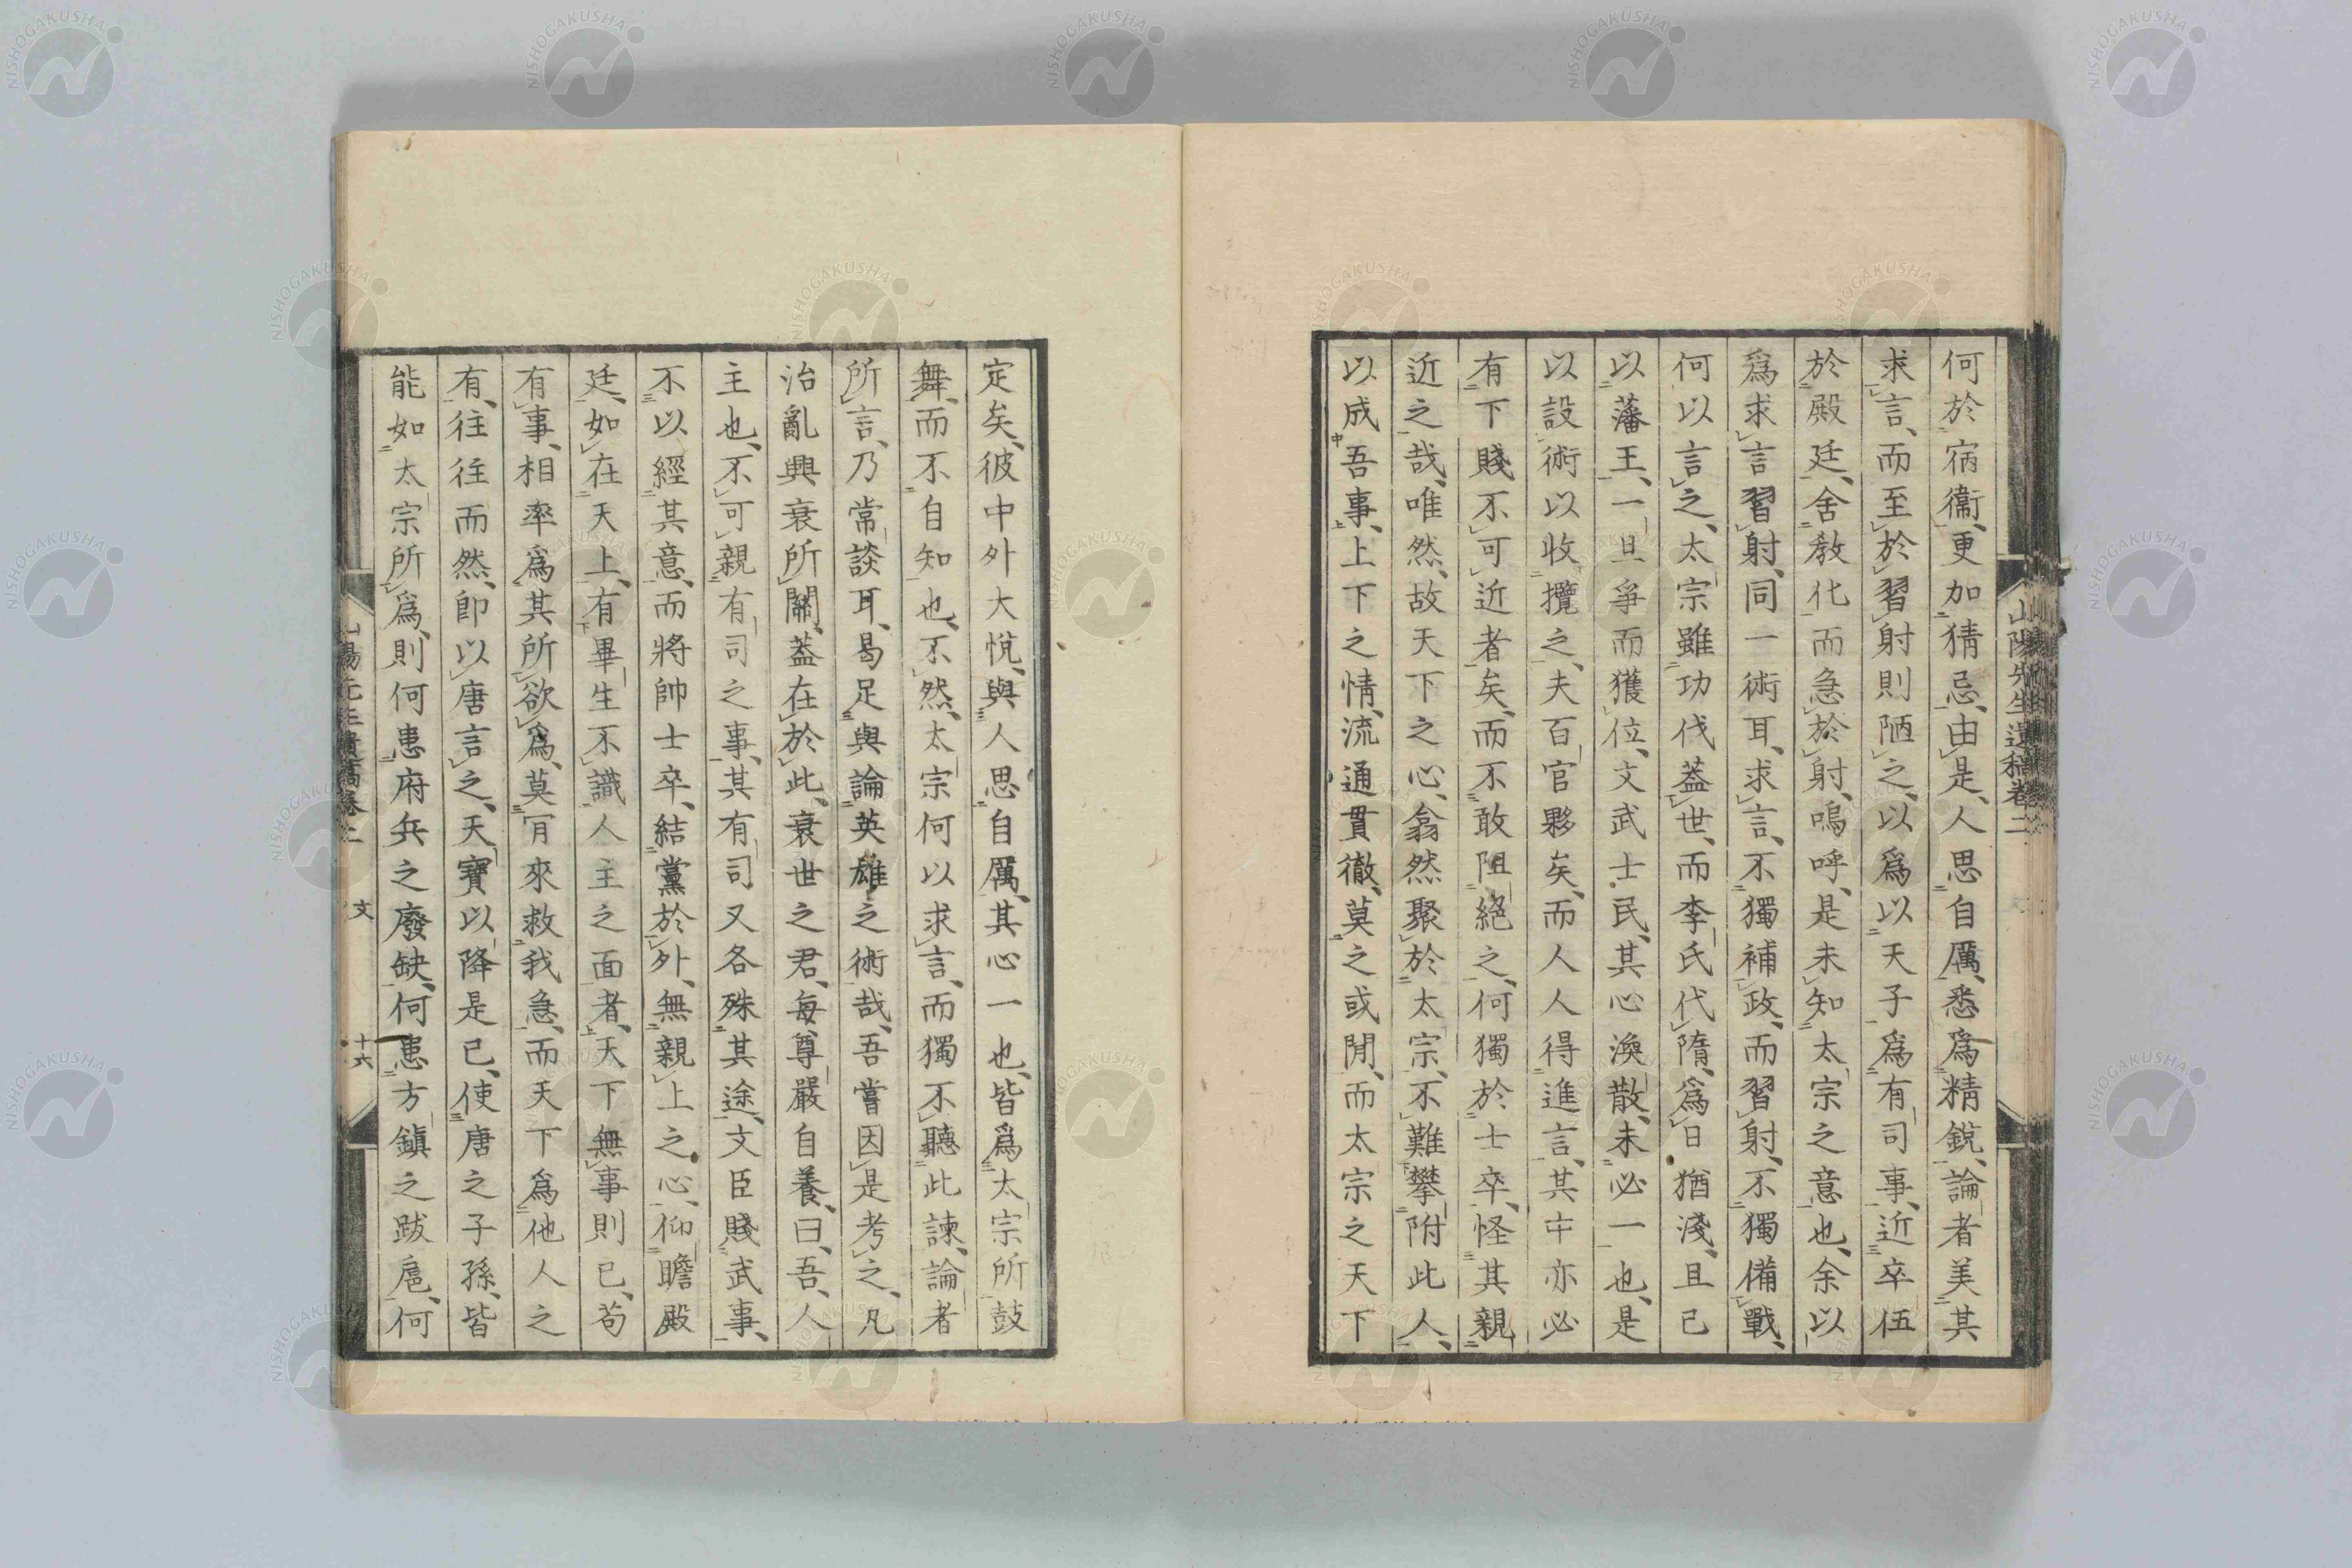 何於宿衞、更加猜忌、由是、人思自厲、悉爲精銳、論者美其
求言、而至於習射則陋之、以爲以天子爲有司事、近卒伍
於殿廷、舍敎化而急於射、嗚呼、是未知太宗之意也、余以
爲求言習射、同一術耳、求言、不獨補政、而習射、不獨備戰、
何以言之、太宗雖功伐蓋世、而李氏代隋、爲日猶淺、且已
以藩王、一旦爭而獲位、文武士民、其心渙散、未必一也、是
以設術以收攬之、夫百官夥矣、而人人得進言、其中亦必
有下賤不可近者矣、而不敢阻絕之、何獨於士卒、怪其親
近之哉、唯然、故天下之心、翕然聚於太宗、不難攀附此人、
以成吾事、上下之情、流通貫徹、莫之或閒、而太宗之天下
山陽先生遺稿卷二
定矣、彼中外大悅、與人思自厲、其心一也、皆爲太宗所鼓
舞、而不自知也、不然、太宗何以求言、而獨不聽此諫、論者
所言、乃常談耳、曷足與論英雄之術哉、吾嘗因是考之、凡
治亂興衰所關、蓋在於此、衰世之君、每尊嚴自養、曰、吾、人
主也、不可親有司之事、其有司又各殊其途、文臣賤武事、
不以經其意、而將帥士卒、結黨於外、無親上之心、仰瞻殿
廷、如在天上、有畢生不識人主之面者、天下無事則已、苟
有事、相率爲其所欲爲、莫肎來救我急、而天下爲他人之
有、往往而然、卽以唐言之、天寶以降是已、使唐之子孫、皆
能如太宗所爲、則何患府兵之廢缺、何患方鎭之跋扈、何
文 十六